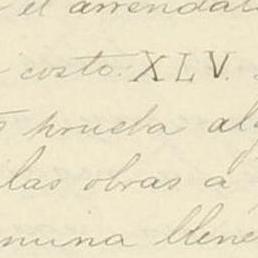 el arrendat
costo. XLV.
prueba alg
las obras á
mina llene